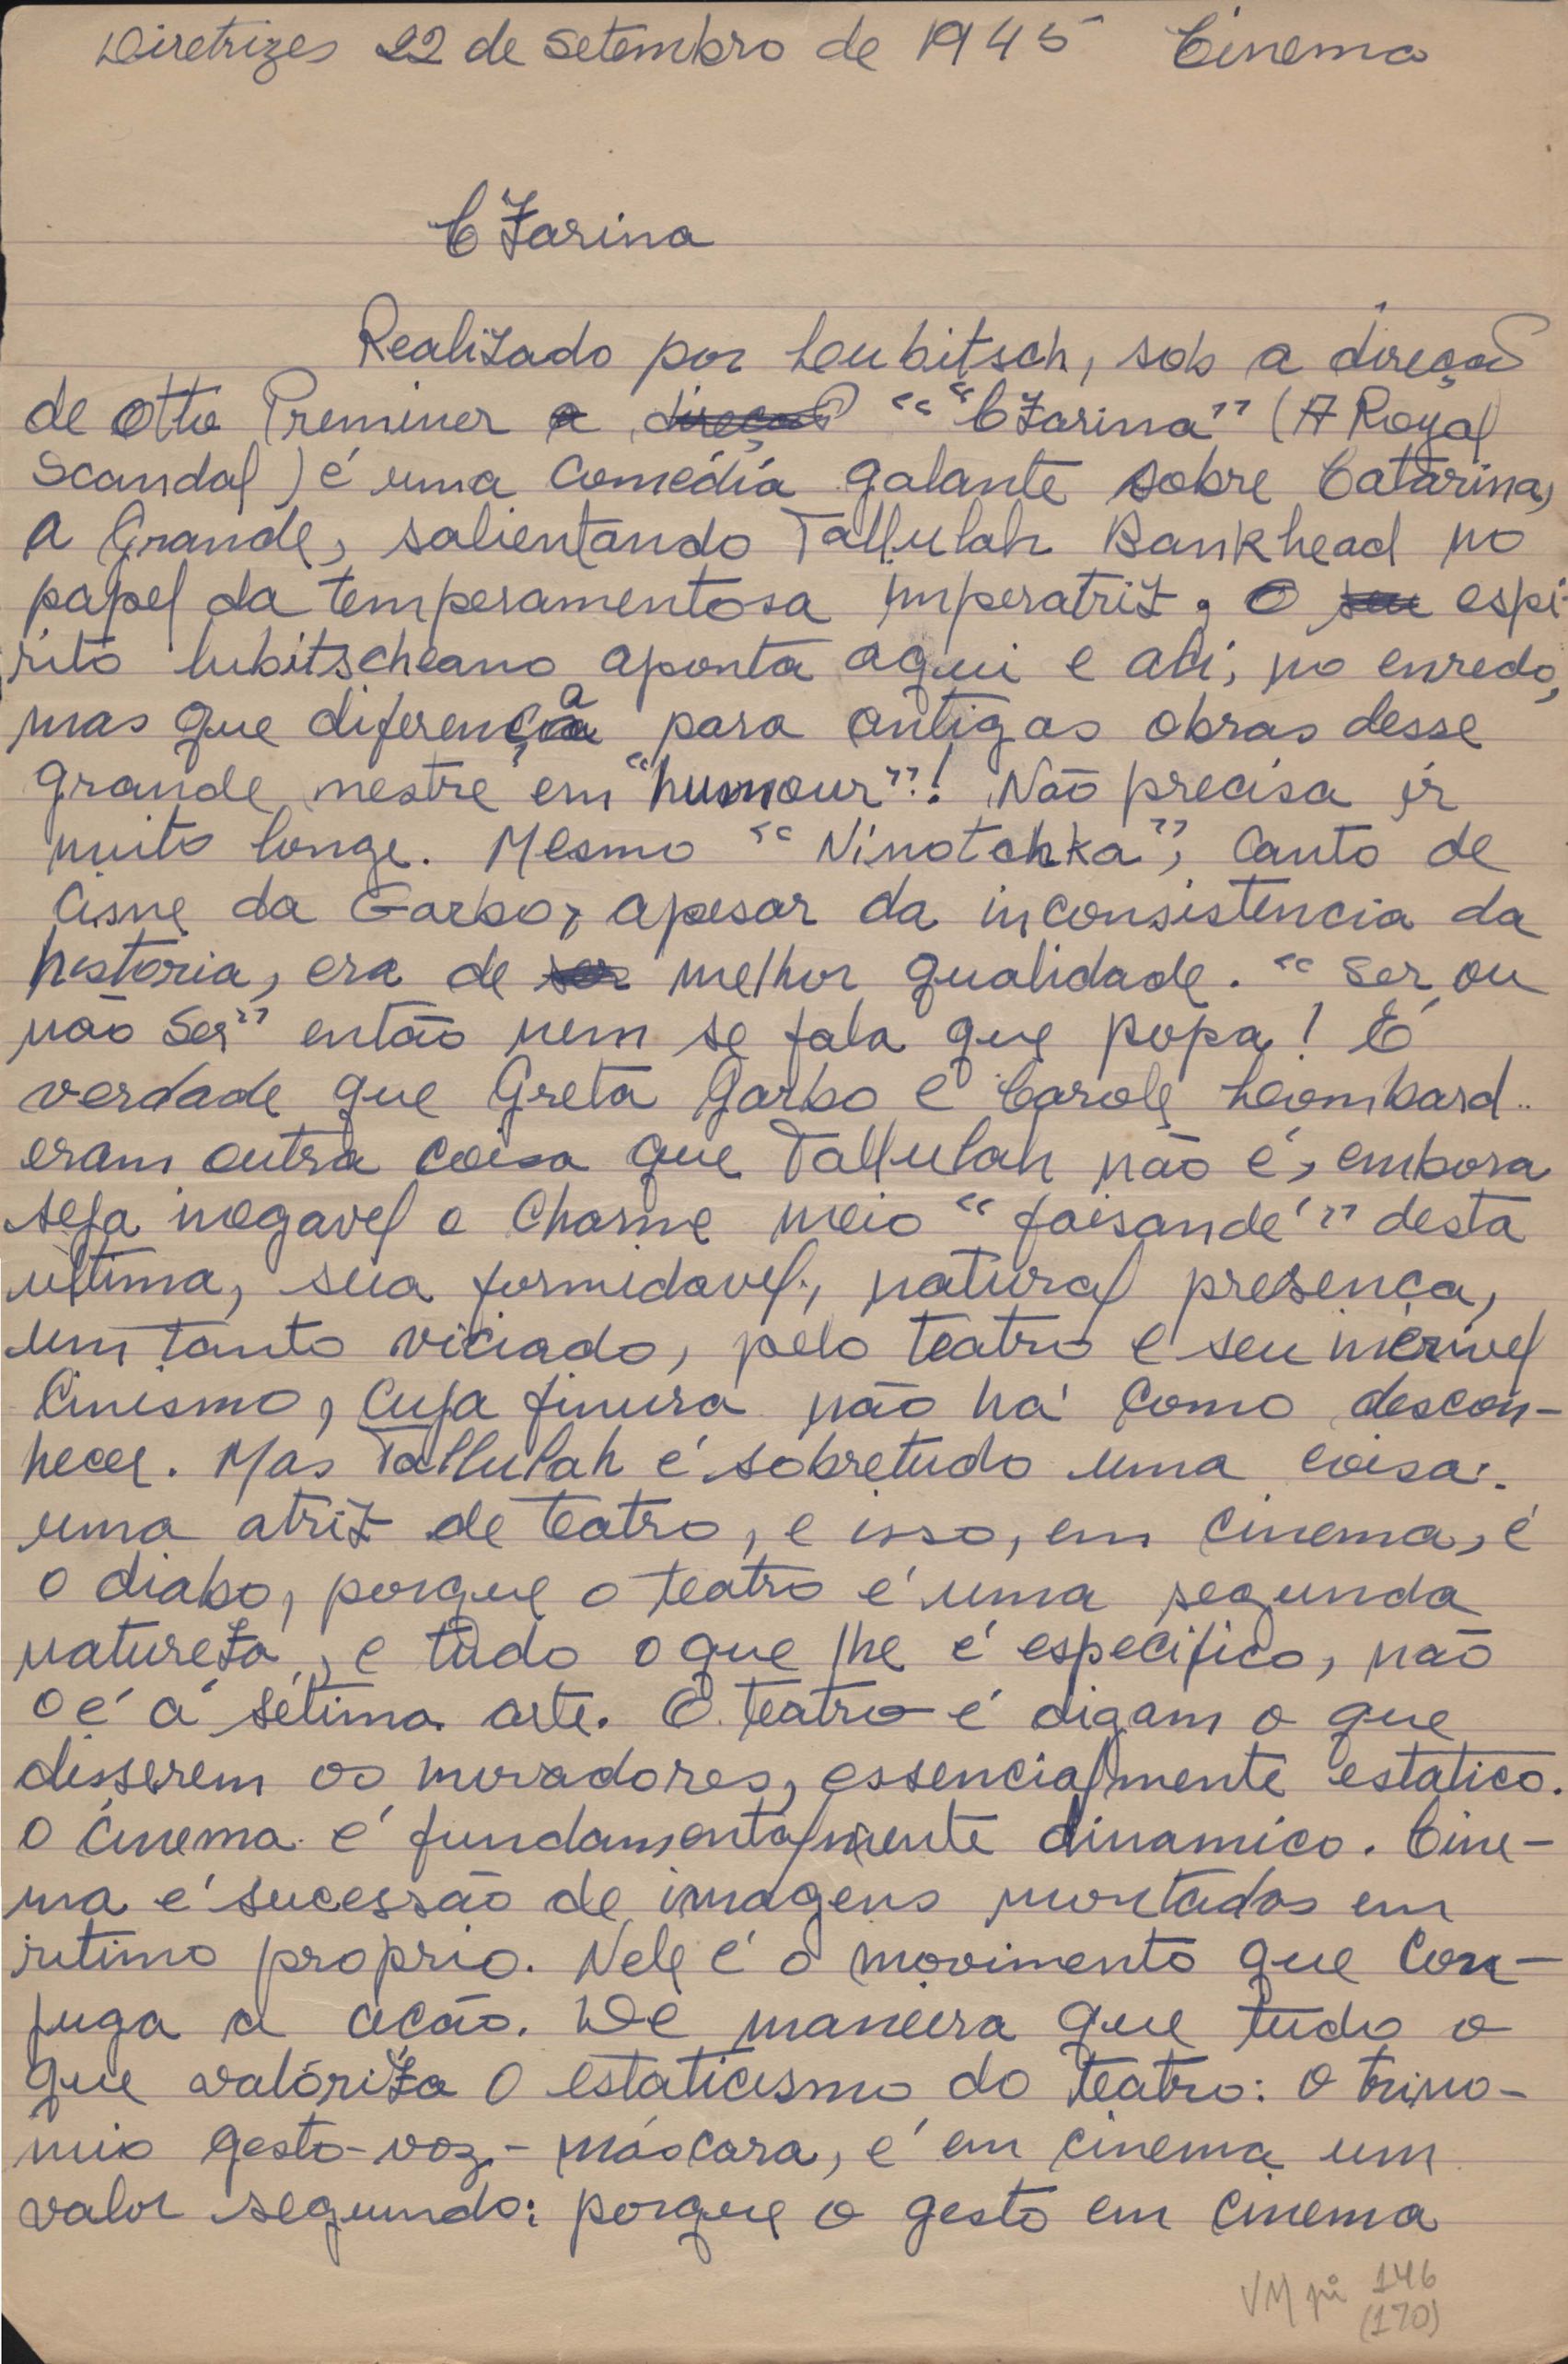 Diretrizes 22 de Setembro de 1945 Cinema
CZarina
Realizado por Leubitsch, sob a direção
de Otto Preminer a direção ""CZarina" (A Royal
Scandal) é uma comédia galante sobre Catarina,
a Grande, salientando Tallulah Bankhead no
papel da temperamentosa imperatriz. O seu espi-
rito lubitscheano aponta aqui e ali, no enredo,
mas que diferença para antigas obras desse
grande mestre em "humour"! Não precisa ir
muito longe. Mesmo "Ninotchka", Canto de
Cisne da Garbo, apesar da inconsistencia da
historia, era de ser melhor qualidade. "Ser ou
não Ser" então nem se fala que popa! É
verdade que Greta Garbo e Carole Leombard
eram outra coisa que Tallulah não é, embora
seja inegavel o Charme meio "faisandé" desta
ultima, sua formidavel, natural presença,
um tanto viciado, pelo teatro e seu incrivel
Cinismo, cuja finura não há como descon-
hecer. Mas Tallulah é sobretudo uma coisa:
uma atriz de teatro, e isso, em cinema, é
o diabo, porque o teatro é uma segunda
natureza, e tudo o que lhe é especifico, não
o é á sétima arte. O teatro é digam o que
disserem os muradores, essencialmente estatico.
O Cinema é fundamentalmente dinamico. Cine-
ma é sucessão de imagens montadas em
ritimo proprio. Nele é o movimento que Con-
juga a ação. De maneira que tudo o
que valóriza o estaticismo do teatro: o trino-
mio gesto-voz-máscara, é em cinema um
valor segundo: porque o gesto em cinema
VM pi 146
(170)